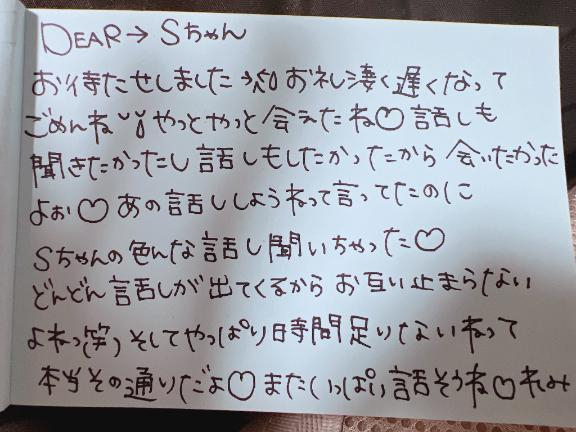 DEAR→ Sちゃん
お待たせしました お礼凄く遅くなって
ごめんね やっとやっと会えたね♡ 話しも
聞きたかったし 話しもしたかったから 会いたかった
よぉ♡ あの話ししようねって言ってたのに
Sちゃんの色んな話し聞いちゃった♡
どんどん話しが出てくるから お互い止まらない
よねっ(笑) そしてやっぱり時間足りないねって
本当その通りだよ♡ またいっぱい話そうね♡ れみ